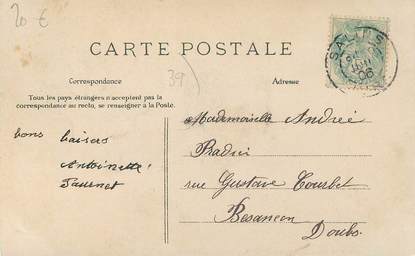 20 €
CARTE POSTALE
SALINS
06
39
Correspondance
Adresse
Tous les pays étrangers n'acceptent pas la
correspondance au recto, se renseigner à la Poste.
Mademoiselle Andrée
bons baisers
Antoinette
rue Gustave Courbet
Besançon
Doubs